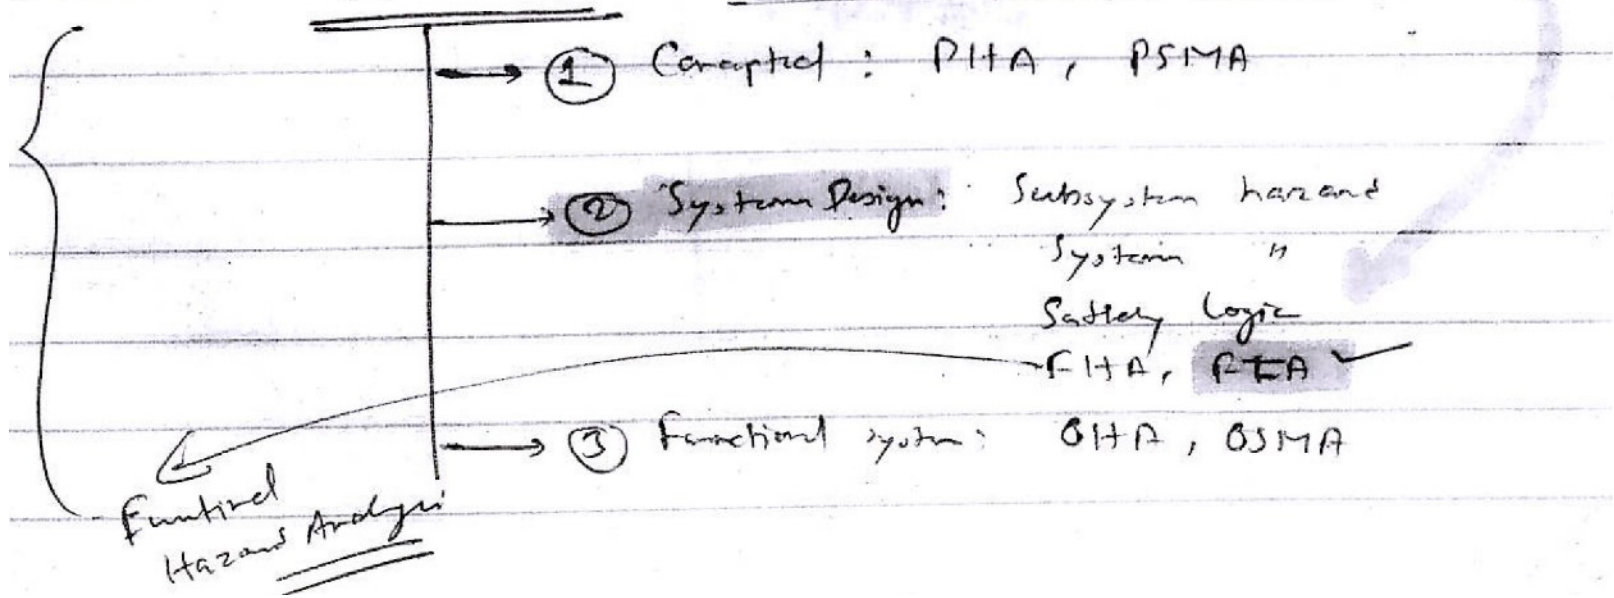 ① Conceptual : PHA, PSMA
② System Design : Subsystem hazard
System "
Safety Logic
FHA, FTA ✓
③ Functional system : OHA, OSMA
Functional
Hazard Analysis